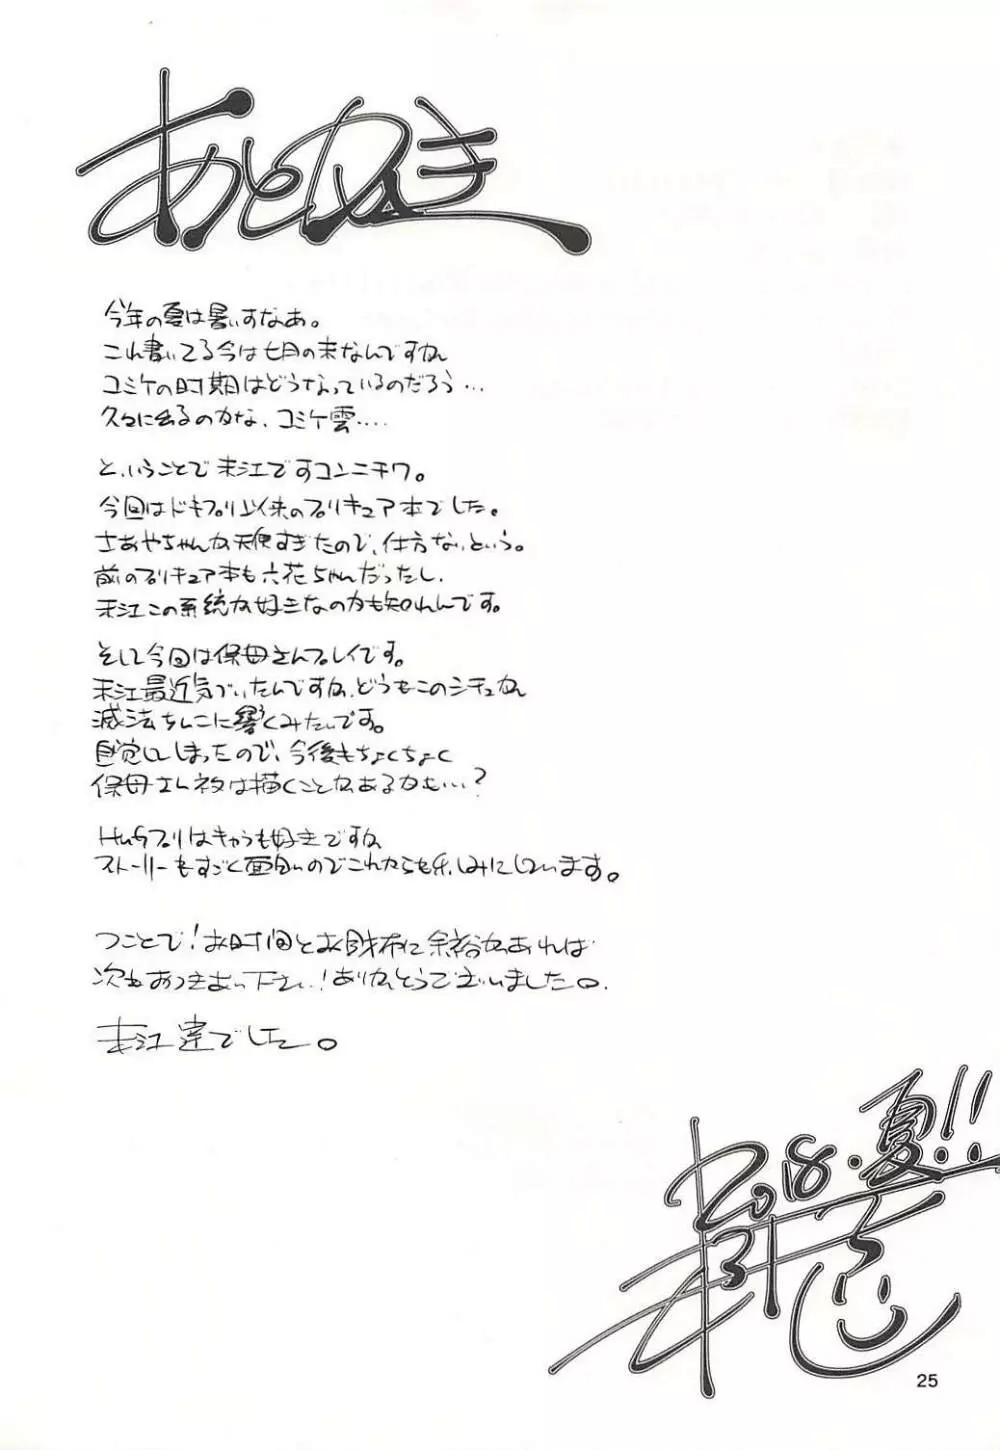 あとがき
今年の夏は暑いすなあ。
これ書いてる今は七月の末なんですがね
コミケの時期はどうなっているのだろう…
久々に出るのかな、コミケ雲‥‥
と、いうことで末江ですコンニチワ。
今回はドキプリ以来のプリキュア本でした。
さあやちゃんが天使すぎたので、仕方ないという。
前のプリキュア本も六花ちゃんだったし、
末江この系統が好きなのかも知れんです。
そして今回は保母さんプレイです。
末江最近気づいたんですが、どうもこのシチュがね
滅法ちんこに響くみたいです。
自覚してしまったので、今後もちょくちょく
保母さんネタは描くことがあるかも…?
Hugプリはキャラも好きですが
ストーリーもすごく面白いのでこれからも楽しみにしています。
つことで!お時間とお財布に余裕があれば
次もおつきあい下さい!ありがとうございました。
末江 達でした。
2018.夏!!
25